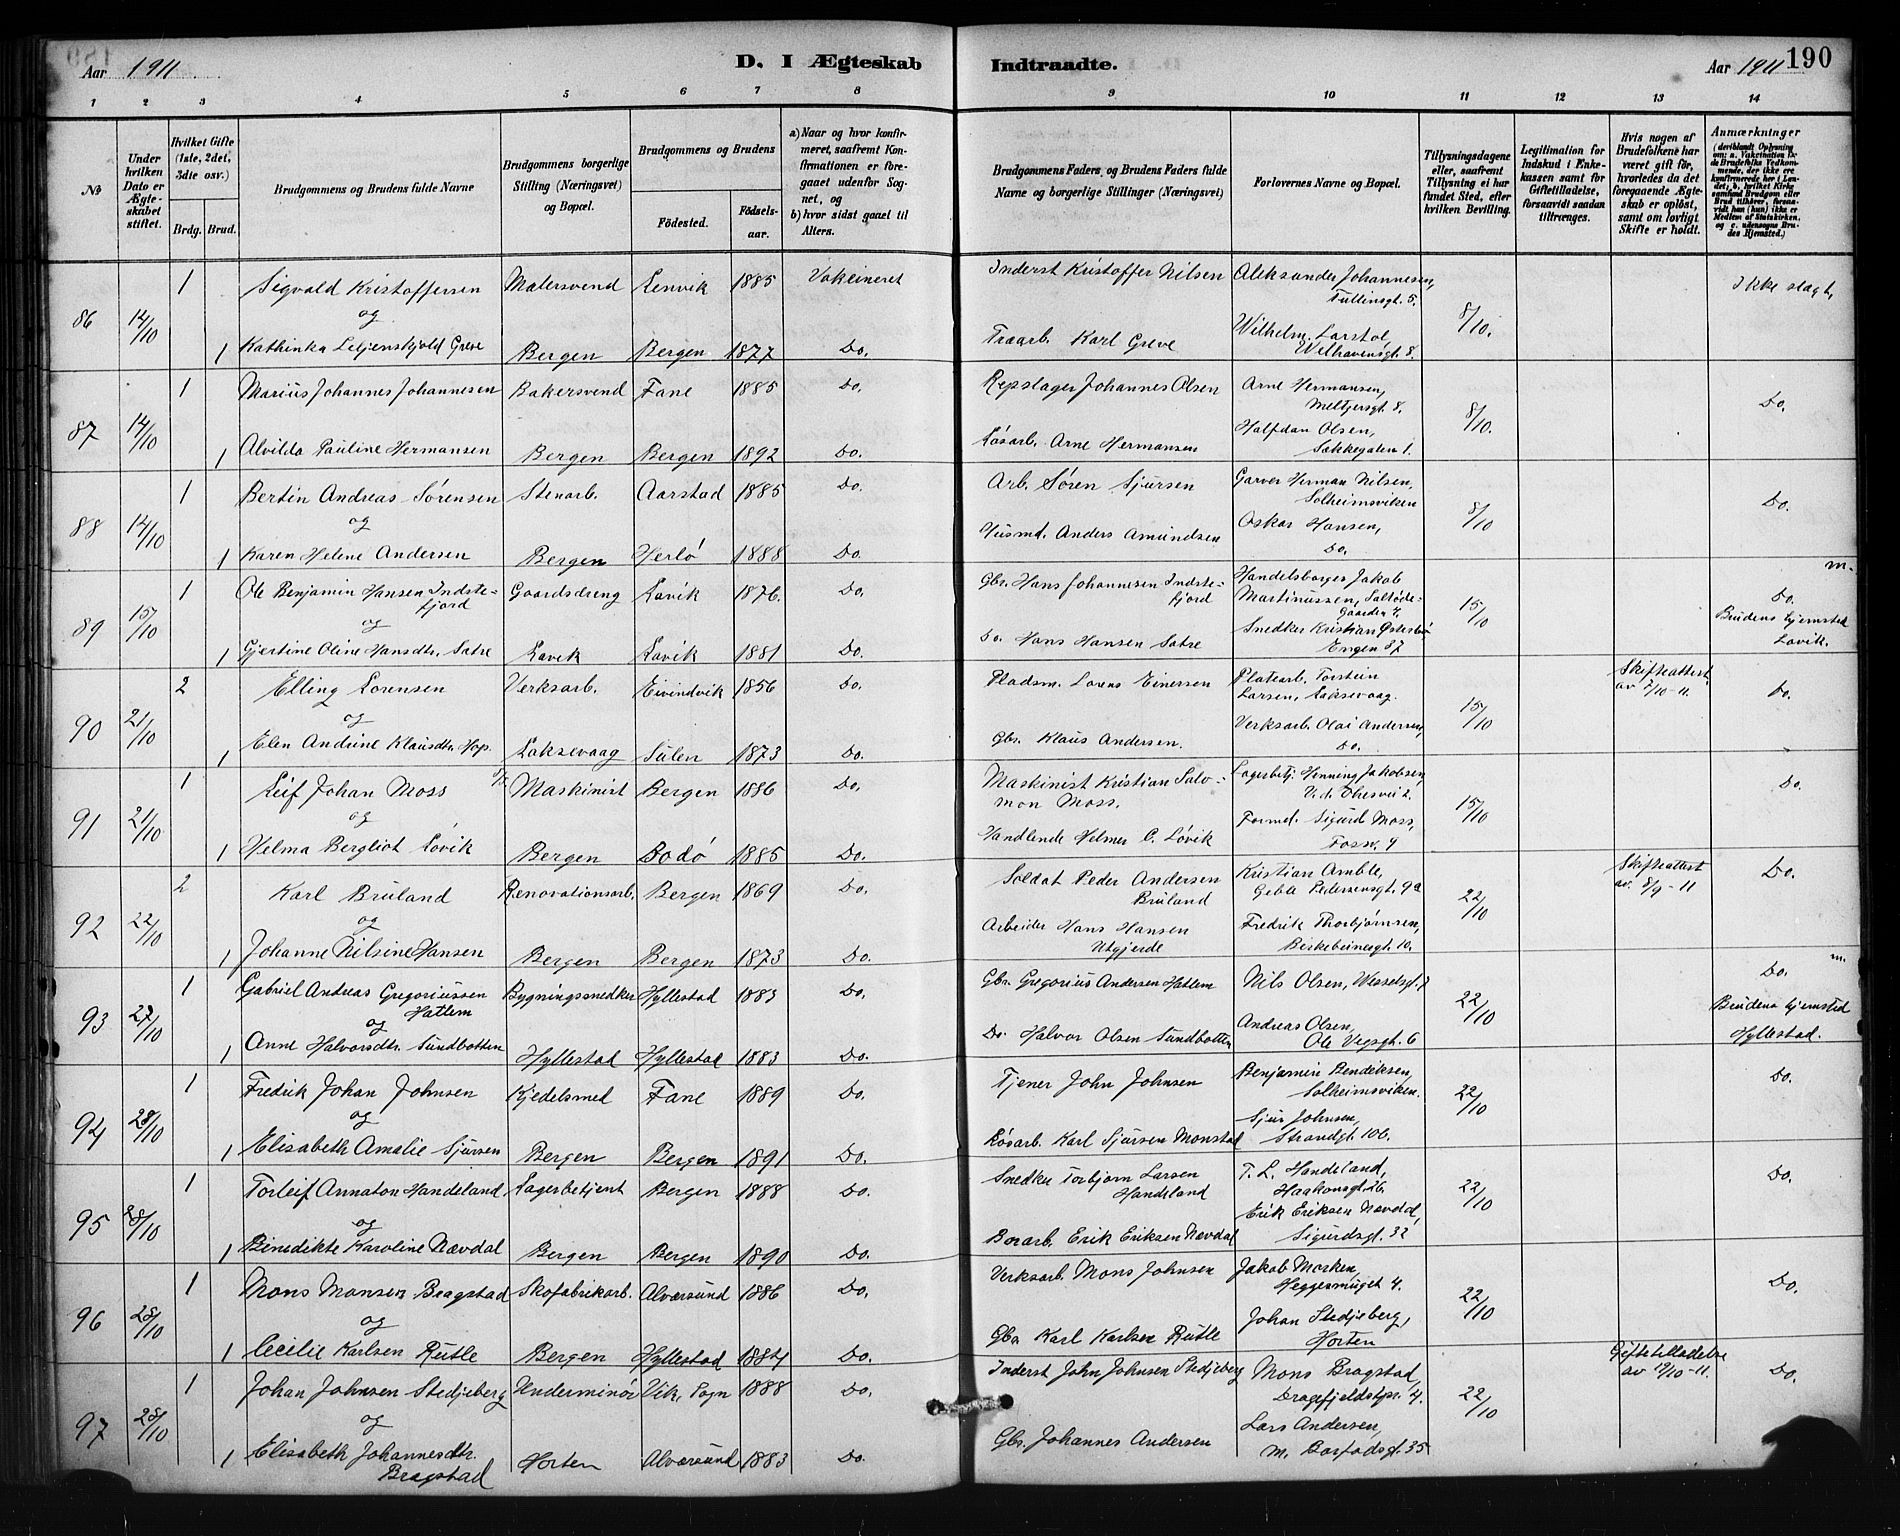 Aar 1911
D. I Ægteskab
Indtraadte.
Aar 1911
190
1 2 3 4 5 6 7 8 9 10 11 12 13 14
No
Under hvilken Dato er Ægteskabet stiftet.
Hvilket Gifte (1ste, 2det, 3die osv.)
Brdg. Brud.
Brudgommens og Brudens fulde Navne
Brudgommens borgerlige Stilling (Næringsvei) og Bopæl.
Brudgommens og Brudens
Fødested.
Fødselsaar.
a) Naar og hvor konfirmeret, saafremt Konfirmationen er foregaaet udenfor Sognet, og
b) hvor sidst gaaet til Alters.
Brudgommens Faders, og Brudens Faders fulde Navne og borgerlige Stillinger (Næringsvei)
Forlovernes Navne og Bopæl.
Tillysningsdagene eller, saafremt Tillysning ei har fundet Sted, efter hvilken Bevilling.
Legitimation for Indskud i Enkekassen samt for Giftetilladelse, forsaavidt saadan tiltrænges.
Hvis nogen af Brudefolkene har været gift før, hvorledes da det foregaaende Ægteskab er opløst, samt om lovligt Skifte er holdt.
Anmærkninger (deriblandt Oplysning om: a. Vaksination for de Brudefolks Vedkommende, der ikke ere konfirmerede her i Landet, b. hvilket Kirkesamfund Brudgom eller Brud tilhører, forsaavidt han (hun) ikke er Medlem af Statskirken, og c. udensogns Brudes Hjemsted.)
86 14/10 1 Sigvald Kristoffersen Malersvend Lenvik 1885 Vakcineret Inderst Kristoffer Nilsen Aleksander Johannesen, Tullinsgt. 5. 8/10. Ikke slægt,
og
1 Kathinka Leljenskjold Greve Bergen Bergen 1877 Do. Træarb. Karl Greve Wilhelm Larstol, Welhavensgt. 8.
87 14/10 1 Marius Johannes Johannesen Bakersvend Fane 1885 Do. Repslager Johannes Olsen Arne Hermansen, Meltzersgt. 8. 8/10. Do.
1 Alvilda Pauline Hermansen Bergen Bergen 1892 Do. Løsarb. Arne Hermansen Halfdan Olsen, Sækkegaten 1.
88 14/10 1 Bertin Andreas Sørensen Stenarb. Aarstad 1885 Do. Arb. Søren Sjursen Garver Herman Nilsen, Solheimsviken 8/10 Do.
og
1 Karen Helene Andersen Bergen Herlø 1888 Do. Husmd. Anders Amundsen Oskar Hansen, Do.
89 15/10 1 Ole Benjamin Hansen Indstefjord Gaardsdreng Lavik 1876. Do. Gbr. Hans Johannesen Indstefjord Handelsborger Jakob Martinussen, Saltøde-Gaarden 4. 15/10 m. Do. Brudens hjemsted Lavik.
og
1 Gjertine Oline Hansdtr. Satre Lavik Lavik 1881 Do. Do. Hans Hansen Satre Snedker Kristian Østerbø Engen 37
90 21/10 2 Elling Lorensen Verksarb. Eivindvik 1856 Do. Pladsm. Lorens Einersen Platearb. Torstein Larsen, Laksevaag. 15/10 Skifteattest av 7/10-11. Do.
og
1 Elen Andrine Klausdtr. Hop. Laksevaag Sulen 1873 Do. Gbr. Klaus Andersen. Verksarb. Olai Andersen, Do.
91 21/10 1 Leif Johan Moss Maskinist Bergen 1886 Do. Maskinist Kristian Salomon Moss. Lagerbetj. Henning Jakobsen 15/10 Do.
og
1 Helma Bergliot Løvik Bergen Bodø 1885 Do. Handlende Helmer C. Løvik Formd. Sigurd Moss, Fossv. 9
92 22/10 2 Karl Bruland Renovationsarb. Bergen 1869 Do. Soldat Peder Andersen Bruland Kristian Amble, Geble Pedersensgt. 9a 22/10 Skifteattest av. 8/9-11 Do.
og
1 Johanne Nilsine Hansen Bergen Bergen 1873 Do. Arbeider Hans Hansen Utgjerde Fredrik Thorbjørnsen, Birkebeinesgt. 10.
93 27/10 1 Gabriel Andreas Gregoriussen Hatlem Bygningssnedker Hyllestad 1883 Do. Gbr. Gregorius Andersen Hatlem Nils Olsen, Wesselsgt. 7 22/10 m. Do. Brudens hjemsted Hyllestad.
og
1 Anne Halvorsdtr. Sundbotten Hyllestad Hyllestad 1883 Do. Do. Halvor Olsen Sundbotten Andreas Olsen, Ole Vigsgt. 6
94 28/10 1 Fredrik Johan Johnsen Kjedelsmed Fane 1889 Do. Tjener John Johnsen Benjamin Bendiksen, Solheimsviken. 22/10 Do.
og
1 Elisabeth Amalie Sjursen Bergen Bergen 1891 Do. Løsarb. Karl Sjursen Monstad Sjur Johnsen, Strandgt. 106.
95 28/10 1 Torleif Annaton Handeland Lagerbetjent Bergen 1888 Do. Snedker Torbjørn Larsen Handeland T. L. Handeland, Haakonsgt. 26. 22/10 Do.
og
1 Benedikte Karoline Nævdal Bergen Bergen 1890 Do. Borarb. Erik Eriksen Nævdal Erik Eriksen Nævdal, Sigurdsgt. 32
96 28/10 1 Mons Monsen Bragstad Skofabrikarb. Alversund 1886 Do. Verksarb. Mons Johnsen Jakob Marken, Heggesmuget 4. 22/10 Do.
og
1 Cecilie Karlsen Rutle Bergen Hyllestad 1884 Do. Gbr. Karl Karlsen Rutle Johan Stedjeberg, Horten
97 28/10 1 Johan Johnsen Stedjeberg Underminør Vik, Sogn 1888 Do. Inderst John Johnsen Stedjeberg Mons Bragstad, Dragefjeldstpr. 4. 22/10 Giftetilladelse av 12/10-11. Do.
og
1 Elisabeth Johannesdtr. Bragstad Horten Alversund 1883 Do. Gbr. Johannes Andersen Lars Andersen, M. Barfodsgt. 35